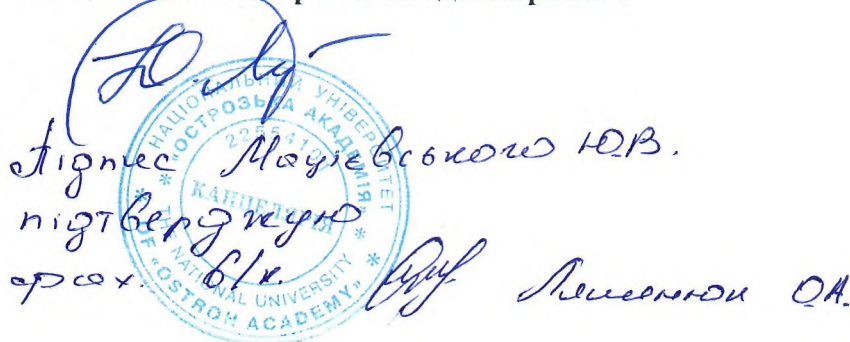 Підпис Мацієвського Ю.В.
підтверджую
фах. в/к. О.А.
НАЦІОНАЛЬНИЙ УНІВЕРСИТЕТ
«ОСТРОЗЬКА АКАДЕМІЯ»
КАНЦЕЛЯРІЯ
THE NATIONAL UNIVERSITY
OF «OSTROH ACADEMY»